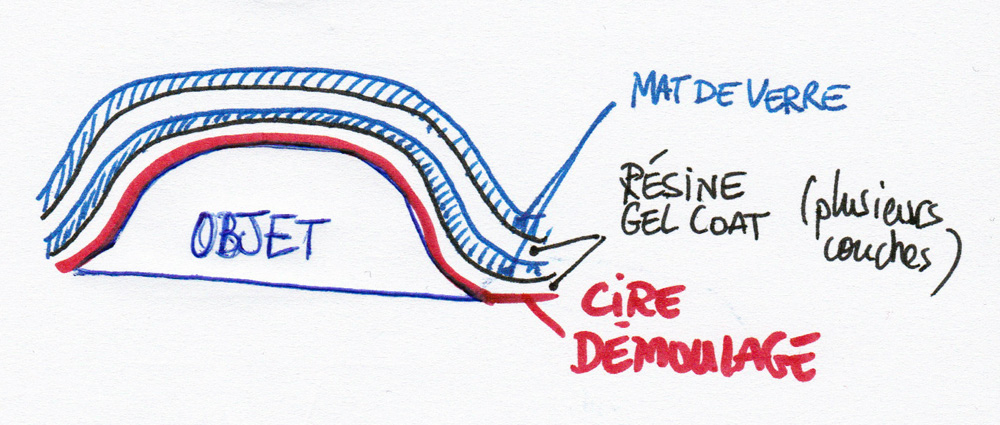 MAT DE VERRE
OBJET
RÉSINE
GEL COAT
(plusieurs
couches)
CIRE
DÉMOULAGE